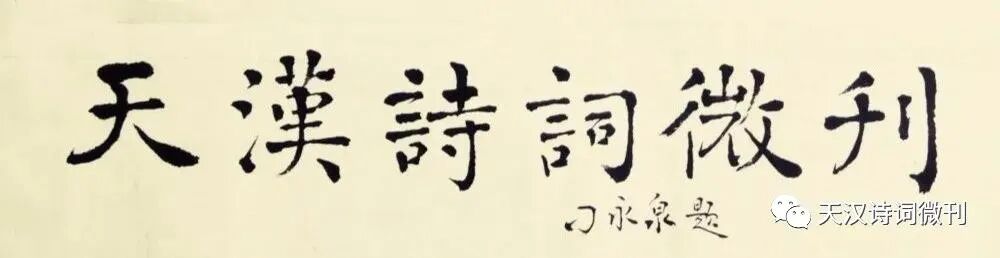 天漢詩詞微刊
刁永泉題
天汉诗词微刊